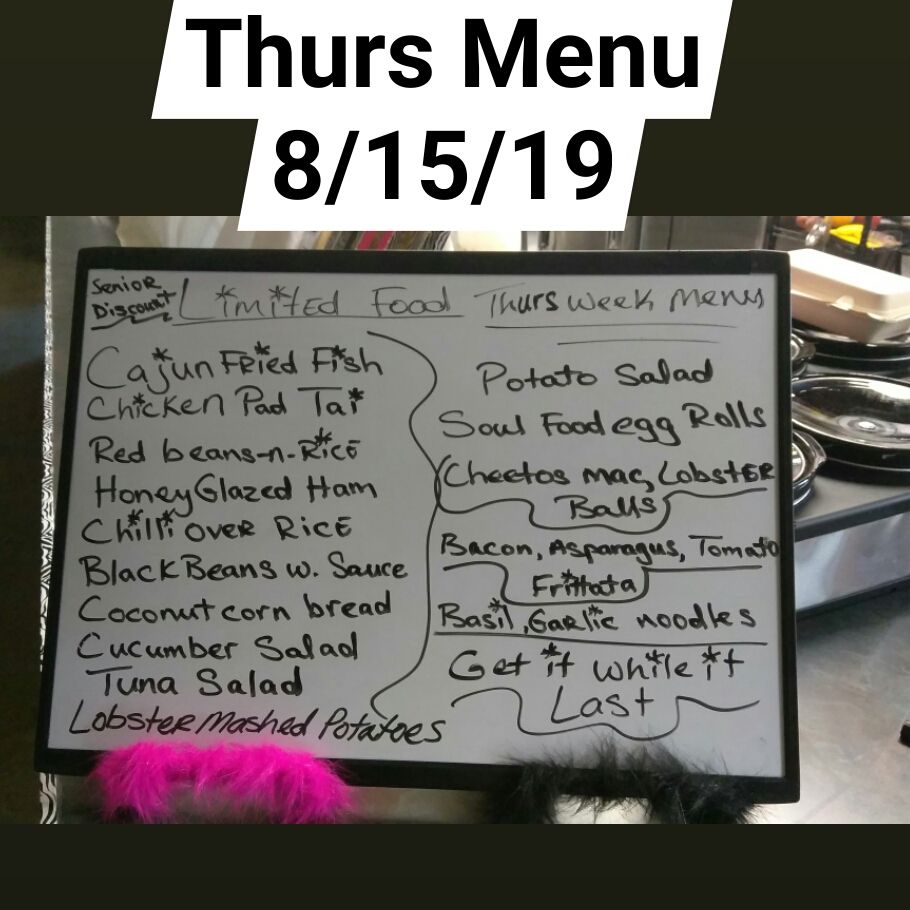 Thurs Menu
8/15/19
Senior
Discount
Limited Food
Cajun Fried Fish
Chicken Pad Tai
Red beans-n-Rice
Honey Glazed Ham
Chilli over Rice
Black Beans w. Sauce
Coconut corn bread
Cucumber Salad
Tuna Salad
Lobster Mashed Potatoes
Thurs week menu
Potato Salad
Soul Food egg Rolls
Cheetos mac, Lobster
Balls
Bacon, Asparagus, Tomato
Frittata
Basil, Garlic noodles
Get it while it
Last